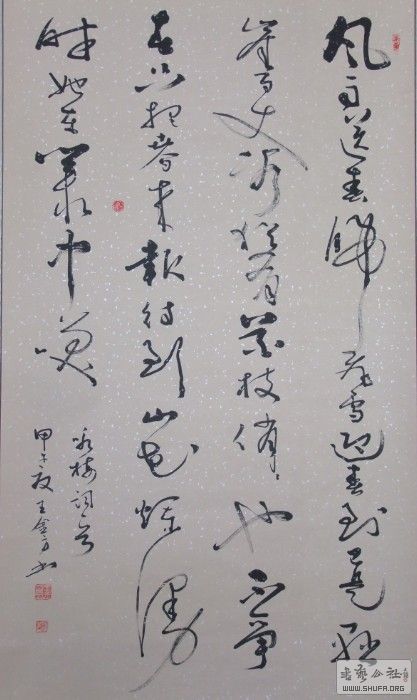 风雨送春归飞雪迎春到已是悬
崖百丈冰犹有花枝俏俏也不争
春只把春来报待到山花烂漫
时她在丛中笑
咏梅词
甲子夏王
書藝公社
WWW.SHUFA.ORG